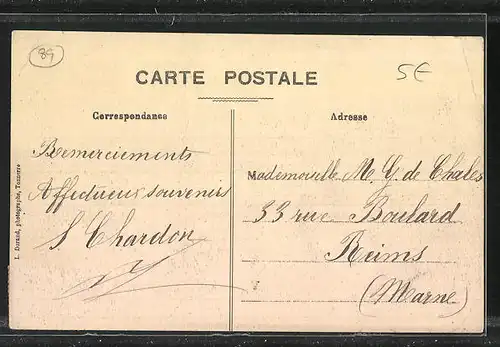 89
CARTE POSTALE
5€
Correspondance
Adresse
Remerciements
Affectueux souvenirs
S. Chardon
Mademoiselle M. G. de Chales
33 rue Boulard
Reims
(Marne)
L. Durand, photographe, Tonnerre